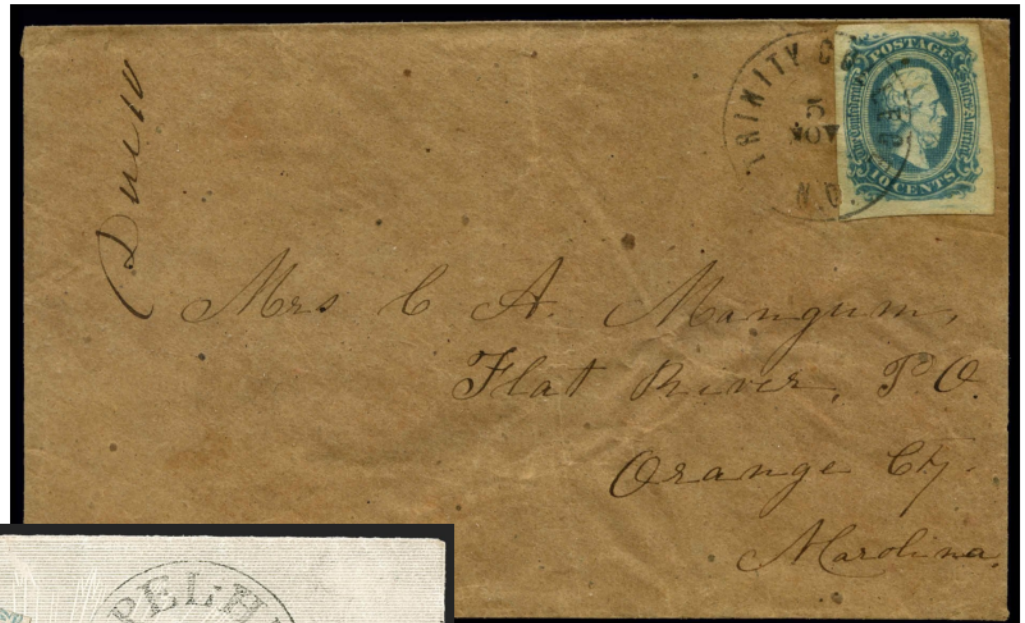 TRINITY CO
5
NOV
N.C.
POSTAGE
The Confederate States America
10 CENTS
Mrs C A. Mangum,
Flat River, P.O.
Orange Cty.
N Carolina.
PELH